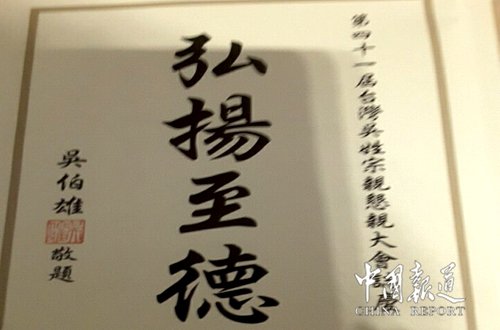 第四十一屆台灣吳姓宗親懇親大會誌慶
弘揚至德
吳伯雄
敬題
中國報道
CHINA REPORT